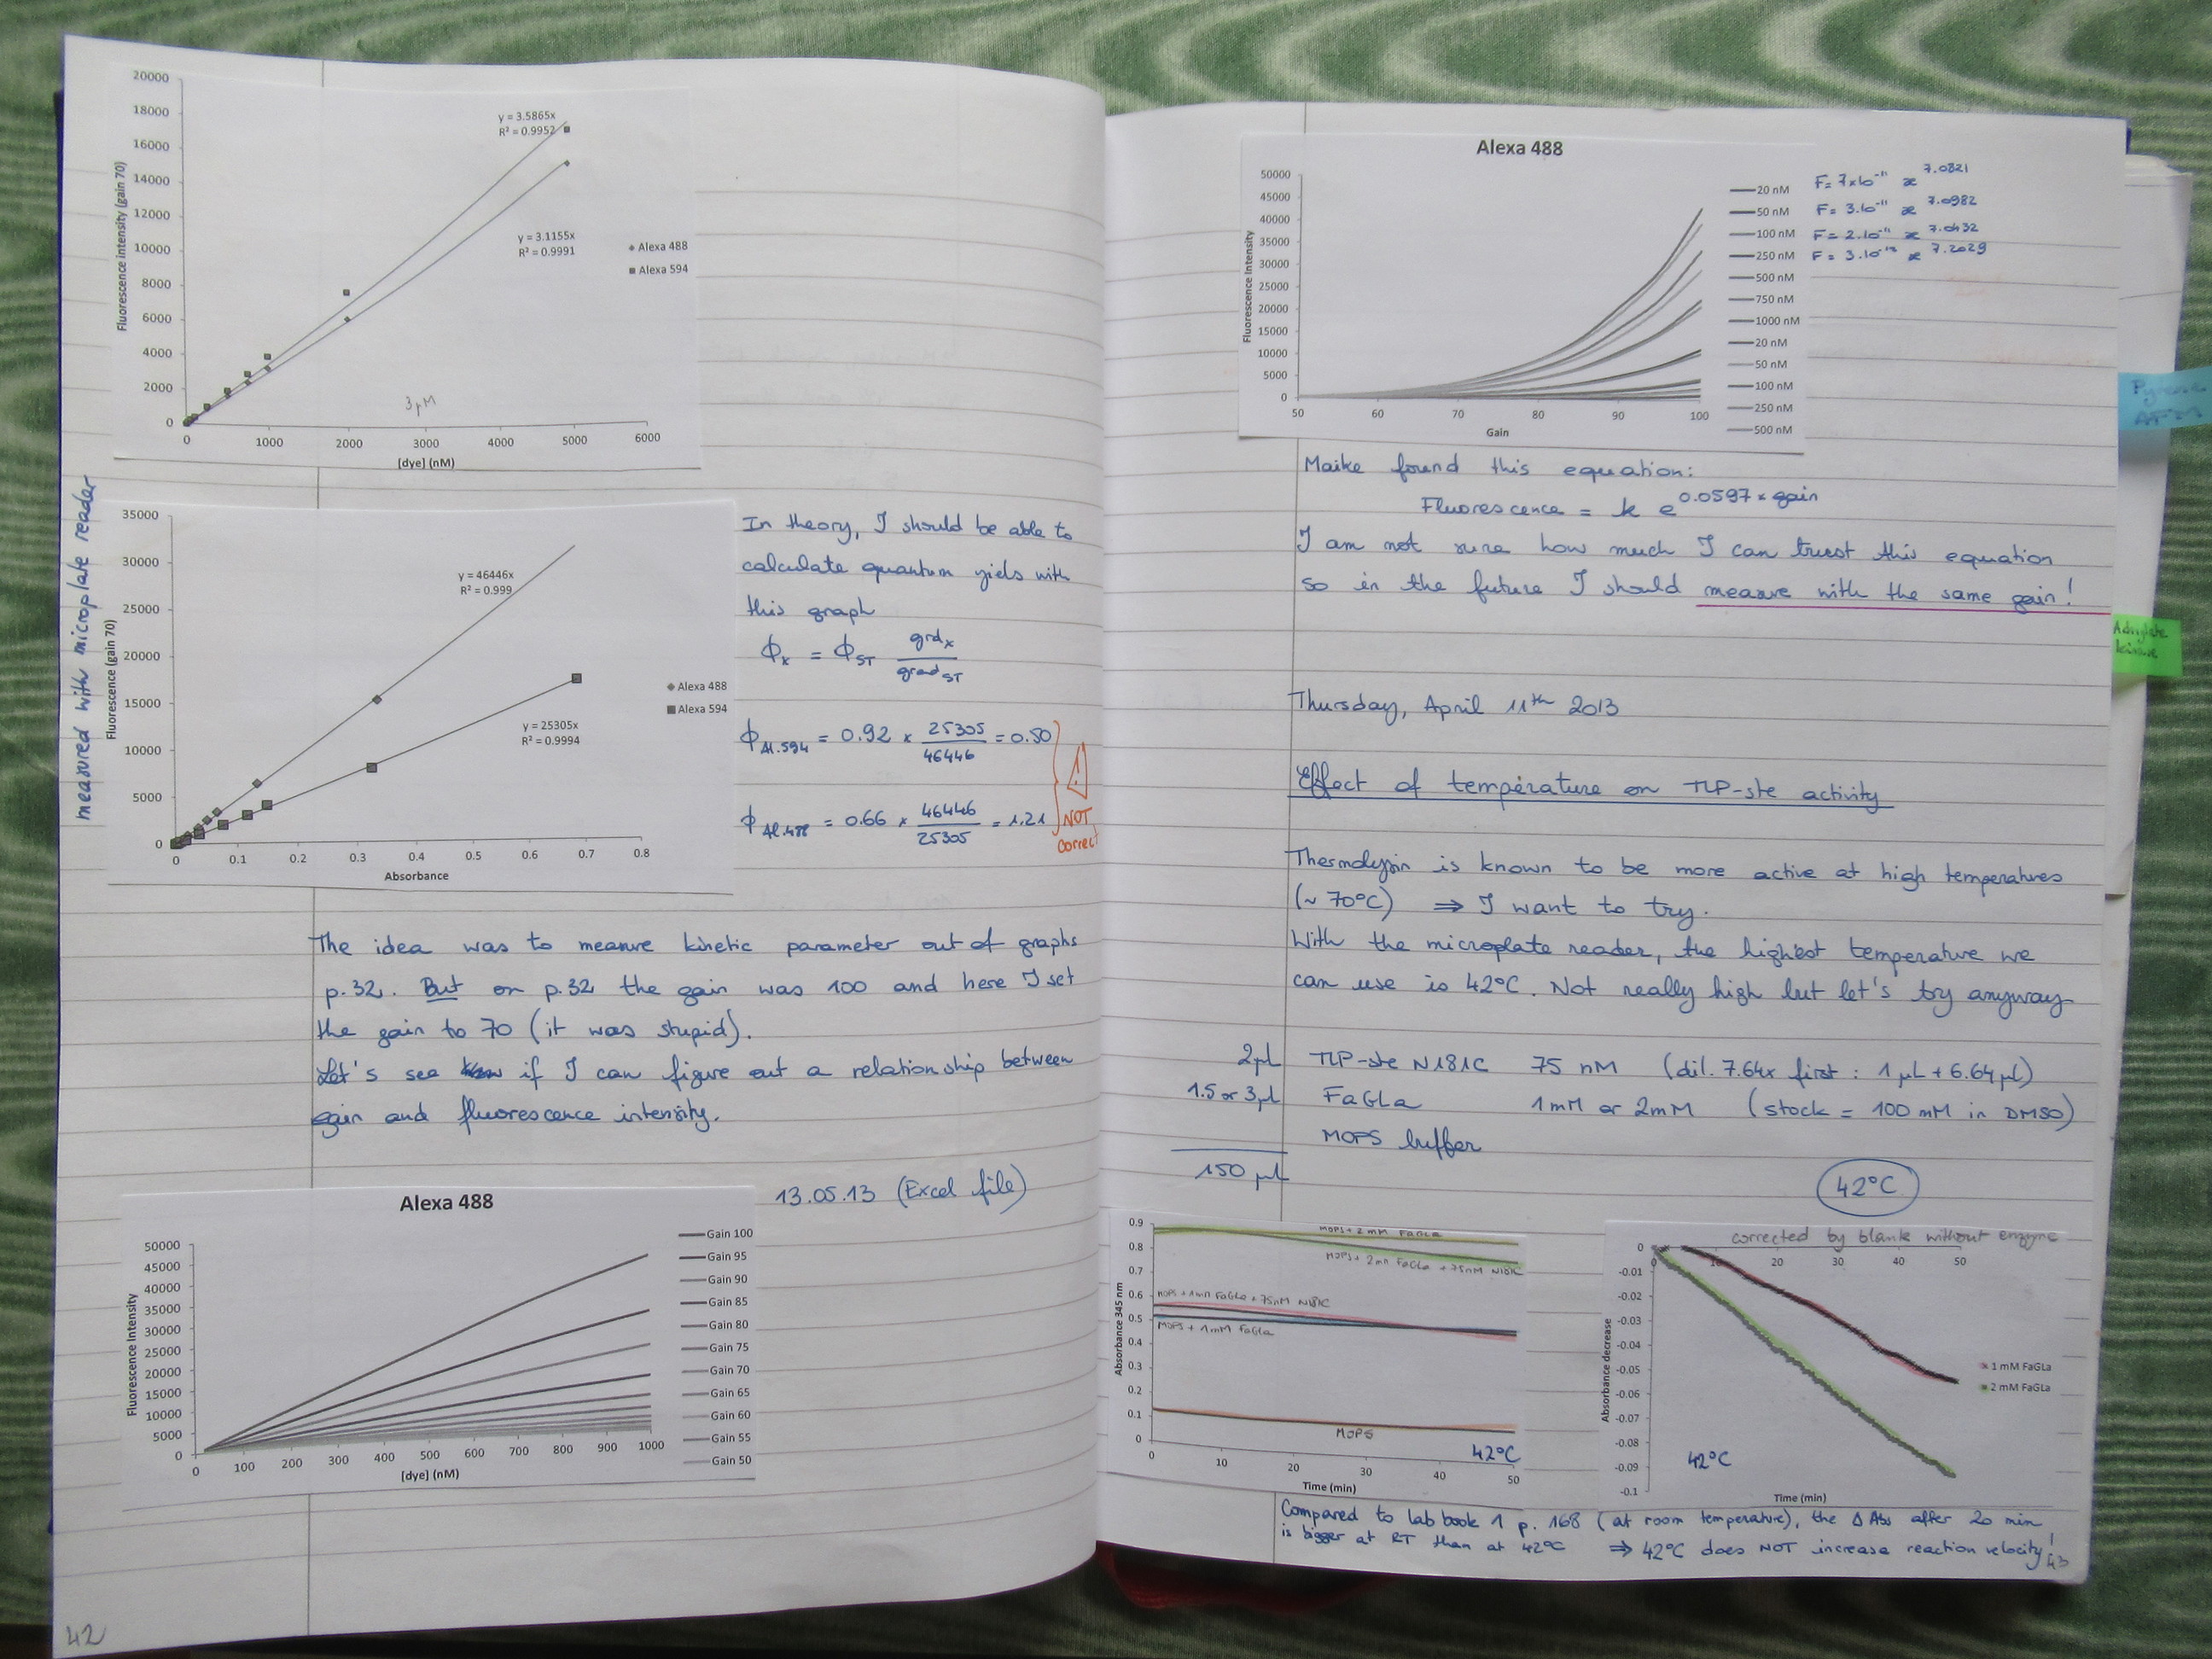 20000
18000
16000
14000
12000
10000
8000
6000
4000
2000
0
Fluorescence intensity (gain 70)
y = 3.5865x
R² = 0.9952
y = 3.1155x
R² = 0.9991
Alexa 488
Alexa 594
3 µM
0 1000 2000 3000 4000 5000 6000
[dye] (nM)
measured with microplate reader
35000
30000
25000
20000
15000
10000
5000
0
Fluorescence (gain 70)
y = 46446x
R² = 0.999
y = 25305x
R² = 0.9994
Alexa 488
Alexa 594
0 0.1 0.2 0.3 0.4 0.5 0.6 0.7 0.8
Absorbance
In theory, I should be able to
calculate quantum yiels with
this graph
Φx = ΦST grdx / gradST
ΦAl.594 = 0.92 × 25305 / 46446 = 0.50
ΦAl.488 = 0.66 × 46446 / 25305 = 1.21
!
NOT
correct
The idea was to measure kinetic parameter out of graphs
p.32. But on p.32 the gain was 100 and here I set
the gain to 70 (it was stupid).
Let's see if I can figure out a relationship between
gain and fluorescence intensity.
13.05.13 (Excel file)
Alexa 488
50000
45000
40000
35000
30000
25000
20000
15000
10000
5000
0
Fluorescence Intensity
Gain 100
Gain 95
Gain 90
Gain 85
Gain 80
Gain 75
Gain 70
Gain 65
Gain 60
Gain 55
Gain 50
0 100 200 300 400 500 600 700 800 900 1000
[dye] (nM)
42
Alexa 488
50000
45000
40000
35000
30000
25000
20000
15000
10000
5000
0
Fluorescence Intensity
20 nM
50 nM
100 nM
250 nM
500 nM
750 nM
1000 nM
20 nM
50 nM
100 nM
250 nM
500 nM
50 60 70 80 90 100
Gain
F = 7×10⁻¹¹ x 7.0321
F = 3.10⁻¹¹ x 7.0982
F = 2.10⁻¹¹ x 7.0432
F = 3.10⁻¹² x 7.2029
Maike found this equation:
Fluorescence = k e 0.0597 × gain
I am not sure how much I can trust this equation
so in the future I should measure with the same gain!
Pyrene
Adenylate
kinase
Thursday, April 11th 2013
Effect of température on TLP-ste activity
Thermolysin is known to be more active at high temperatures
(~ 70°C) ⇒ I want to try.
With the microplate reader, the highest temperature we
can use is 42°C. Not really high but let's try anyway
2µL TLP-ste N181C 75 nM (dil. 7.64x first : 1 µL + 6.64 µL)
1.5 or 3µL FaGLa 1mM or 2mM (stock = 100 mM in DMSO)
MOPS buffer
150 µL
42°C
0.9
0.8
0.7
0.6
0.5
0.4
0.3
0.2
0.1
0
Absorbance 345 nm
MOPS + 2 mM FaGLa
MOPS + 2mM FaGLa + 75nM N181C
MOPS + 1mM FaGLa + 75nM N181C
MOPS + 1mM FaGLa
MOPS
42°C
0 10 20 30 40 50
Time (min)
corrected by blank without enzyme
0 10 20 30 40 50
0
-0.01
-0.02
-0.03
-0.04
-0.05
-0.06
-0.07
-0.08
-0.09
-0.1
Absorbance decrease
1 mM FaGLa
2 mM FaGLa
42°C
Time (min)
Compared to lab book 1 p. 168 (at room temperature), the Δ Abs after 20 min
is bigger at RT than at 42°C ⇒ 42°C does NOT increase reaction velocity!
43